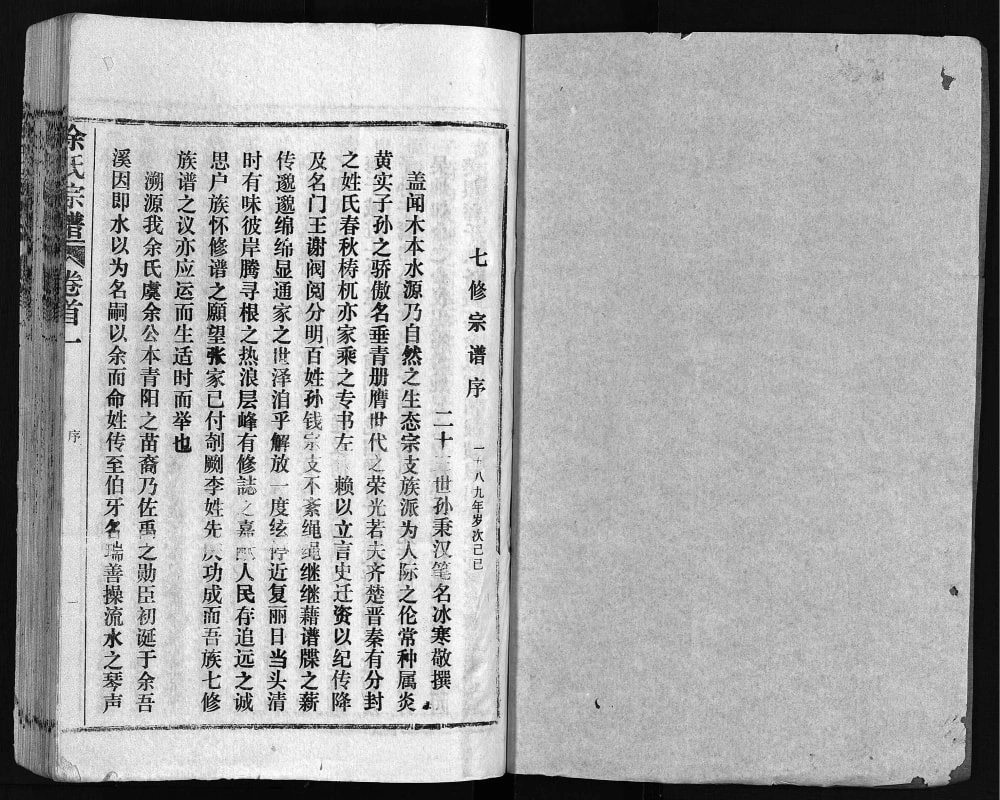 七修宗谱序
一 八九年岁次己巳
二十 世孙秉汉笔名冰寒敬撰
盖闻木本水源乃自然之生态宗支族派为人际之伦常种属炎
黄实子孙之骄傲名垂青册膺世代之荣光若夫齐楚晋秦有分封
之姓氏春秋梼杌亦家乘之专书左 赖以立言史迁资以纪传降
及名门王谢阀阅分明百姓孙钱宗支不紊绳绳继继藉谱牒之薪
传邈邈绵绵显通家之世泽洎乎解放一度纮停近复丽日当头清
时有味彼岸腾寻根之热浪层峰有修誌之嘉 人民存追远之诚
思户族怀修谱之愿望张家已付剞劂李姓先 功成而吾族七修
族谱之议亦应运而生适时而举也
溯源我余氏虞余公本青阳之苗裔乃佐禹之勋臣初诞于余吾
溪因即水以为名嗣以余而命姓传至伯牙名瑞善操流水之琴声
余氏宗谱
卷首一
序
一